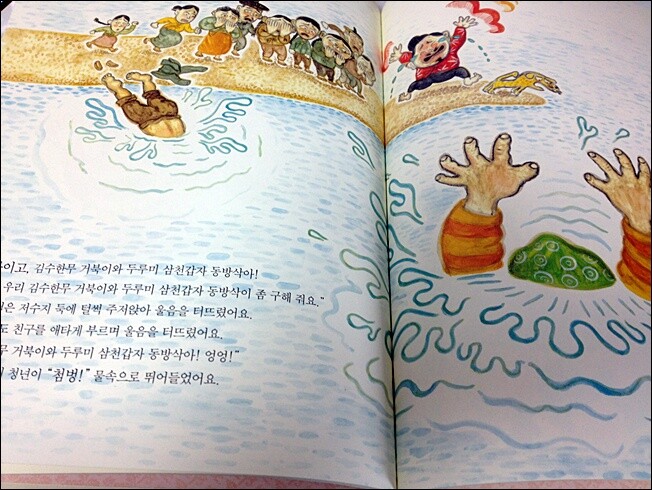 이고, 김수한무 거북이와 두루미 삼천갑자 동방삭아!
우리 김수한무 거북이와 두루미 삼천갑자 동방삭이 좀 구해 줘요."
은 저수지 둑에 털썩 주저앉아 울음을 터뜨렸어요.
도 친구를 애타게 부르며 울음을 터뜨렸어요.
무 거북이와 두루미 삼천갑자 동방삭아! 엉엉!"
청년이 "첨벙!" 물속으로 뛰어들었어요.